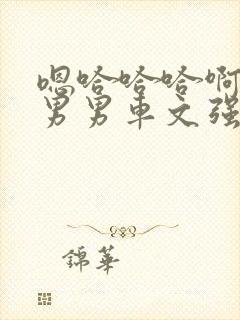 嗯哈哈哈啊
男男车文强
錦華